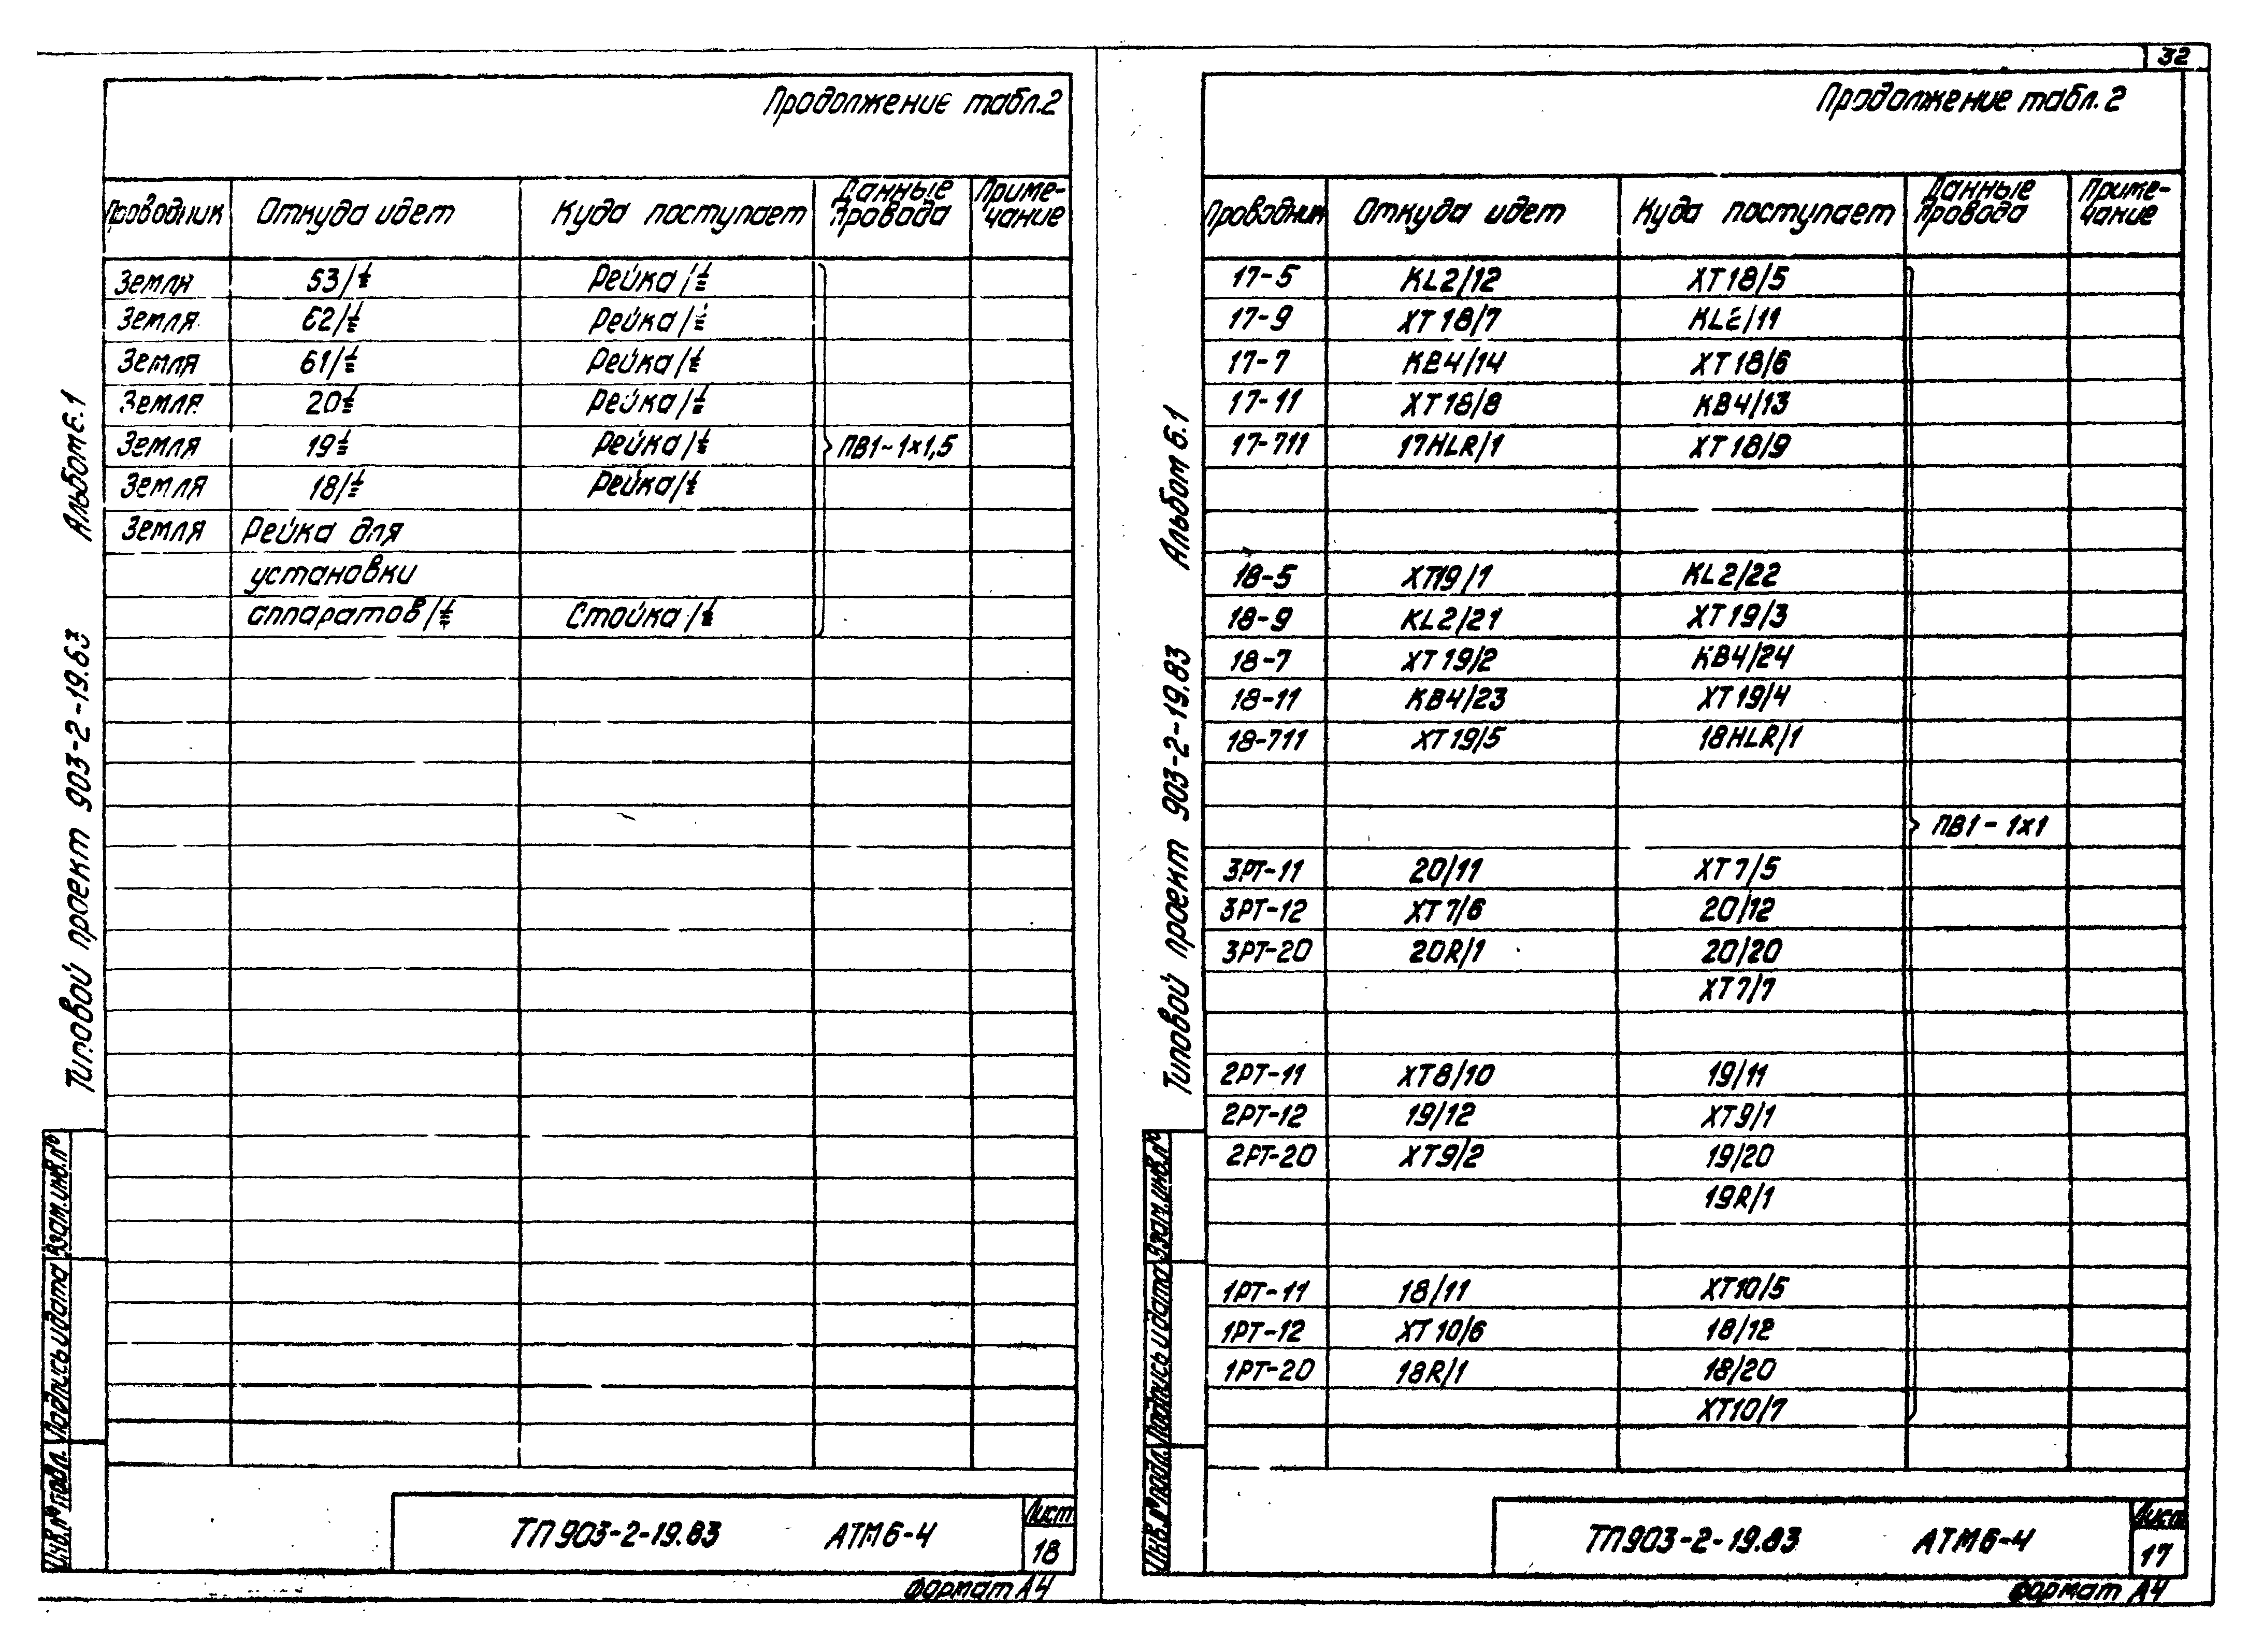 32
Продолжение табл.2
Проводник Откуда идет Куда поступает Данные провода Приме-чание
Земля 53/⏚ Рейка/⏚
Земля 62/⏚ Рейка/⏚
Земля 61/⏚ Рейка/⏚
Земля 20⏚ Рейка/⏚
Земля 19⏚ Рейка/⏚ ПВ1-1х1,5
Земля 18/⏚ Рейка/⏚
Земля Рейка для
установки
аппаратов/⏚ Стойка/⏚
Альбом 6.1
Типовой проект 903-2-19.83
Взам.инв.№
Подпись и дата
Инв.№ подл.
ТП903-2-19.83 АТМ6-4
Лист
18
Формат А4
Продолжение табл. 2
Проводник Откуда идет Куда поступает Данные провода Приме-чание
17-5 KL2/12 XT18/5
17-9 XT18/7 KL2/11
17-7 KB4/14 XT18/6
17-11 XT18/8 KB4/13
17-711 17HLR/1 XT18/9
18-5 XT19/1 KL2/22
18-9 KL2/21 XT19/3
18-7 XT19/2 KB4/24
18-11 KB4/23 XT19/4
18-711 XT19/5 18HLR/1
ПВ1-1х1
3РТ-11 20/11 XT7/5
3РТ-12 XT7/6 20/12
3РТ-20 20R/1 20/20
XT7/7
2РТ-11 XT8/10 19/11
2РТ-12 19/12 XT9/1
2РТ-20 XT9/2 19/20
19R/1
1РТ-11 18/11 XT10/5
1РТ-12 XT10/6 18/12
1РТ-20 18R/1 18/20
XT10/7
Альбом 6.1
Типовой проект 903-2-19.83
Взам.инв.№
Подпись и дата
Инв.№ подл.
ТП903-2-19.83 АТМ6-4
Лист
17
Формат А4